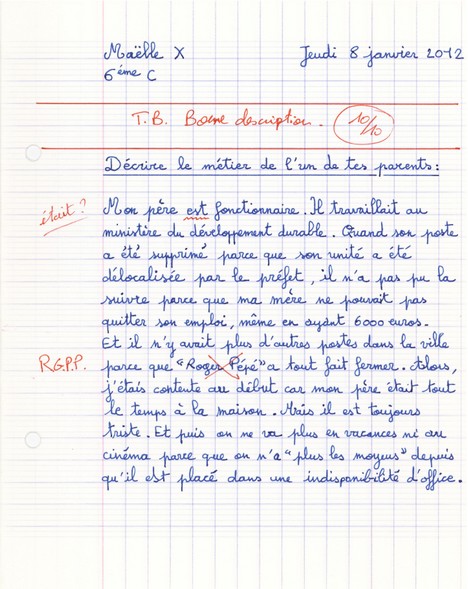 Maëlle X Jeudi 8 janvier 2012
6ème C
T.B. Bonne description. 10/10
Décrire le métier de l'un de tes parents :
était ? Mon père est fonctionnaire. Il travaillait au
ministère du développement durable. Quand son poste
a été supprimé parce que son unité a été
délocalisée par le préfet, il n'a pas pu la
suivre parce que ma mère ne pouvait pas
quitter son emploi, même en ayant 6000 euros.
Et il n'y avait plus d'autres postes dans la ville
R.G.P.P. parce que "Roger Pépé" a tout fait fermer. Alors,
j'étais contente au début car mon père était tout
le temps à la maison. Mais il est toujours
triste. Et puis on ne va plus en vacances ni au
cinéma parce que on n'a "plus les moyens" depuis
qu'il est placé dans une indisponibilité d'office.